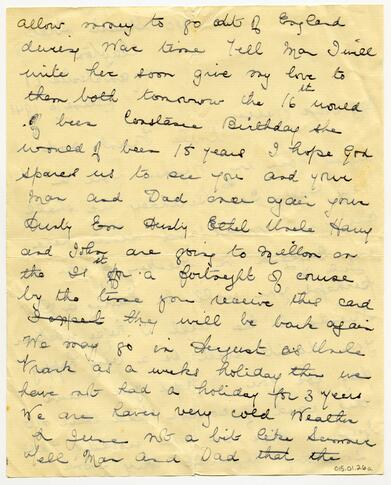 allow money to go out of England
during War time Tell Mar I will
write her soon give my love to
them both tomorrow the 16th would
of been Constance Birthday she
would of been 15 years I hope God
spares us to see you and your
Mar and Dad once again your
Aunty Ethel Uncle Harry
and John are going to on
the 1st for a fortnight of course
by the time you receive this card
I expect they will be back again
We may go in August as Uncle
Frank as a weeks holiday then we
have not had a holiday for 3 years
We are haveg very cold Weather
June not a bit like Summer
Tell Mar and Dad that the
015.01.26a